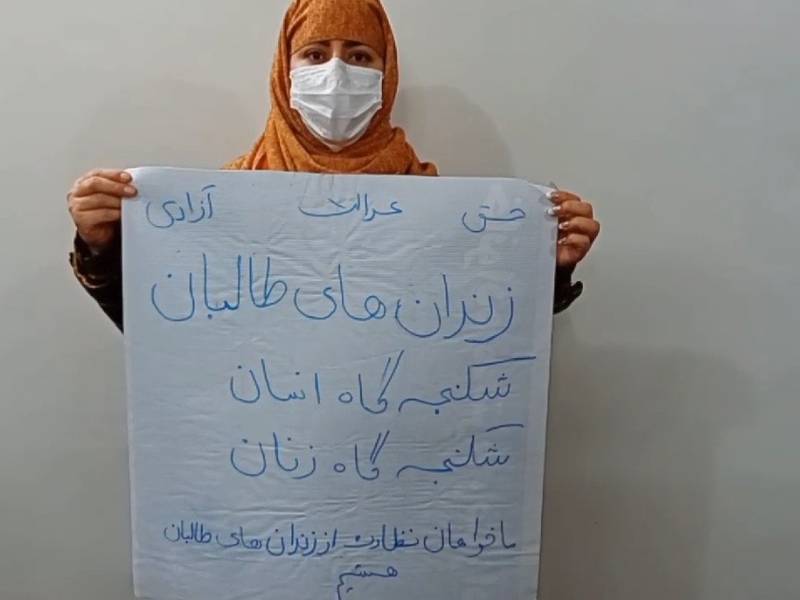 حق عدالت آزادی
زندان های طالبان
شکنجه گاه انسان
شکنجه گاه زنان
ما خواهان نظارت از زندان های طالبان
هستیم